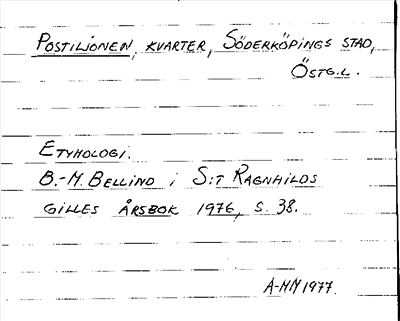 Postiljonen, kvarter, Söderköpings stad,
Östg.l.
Etymologi.
B.-M. Bellind i S:t Ragnhilds
Gilles årsbok 1976, s. 38.
A-MM 1977.